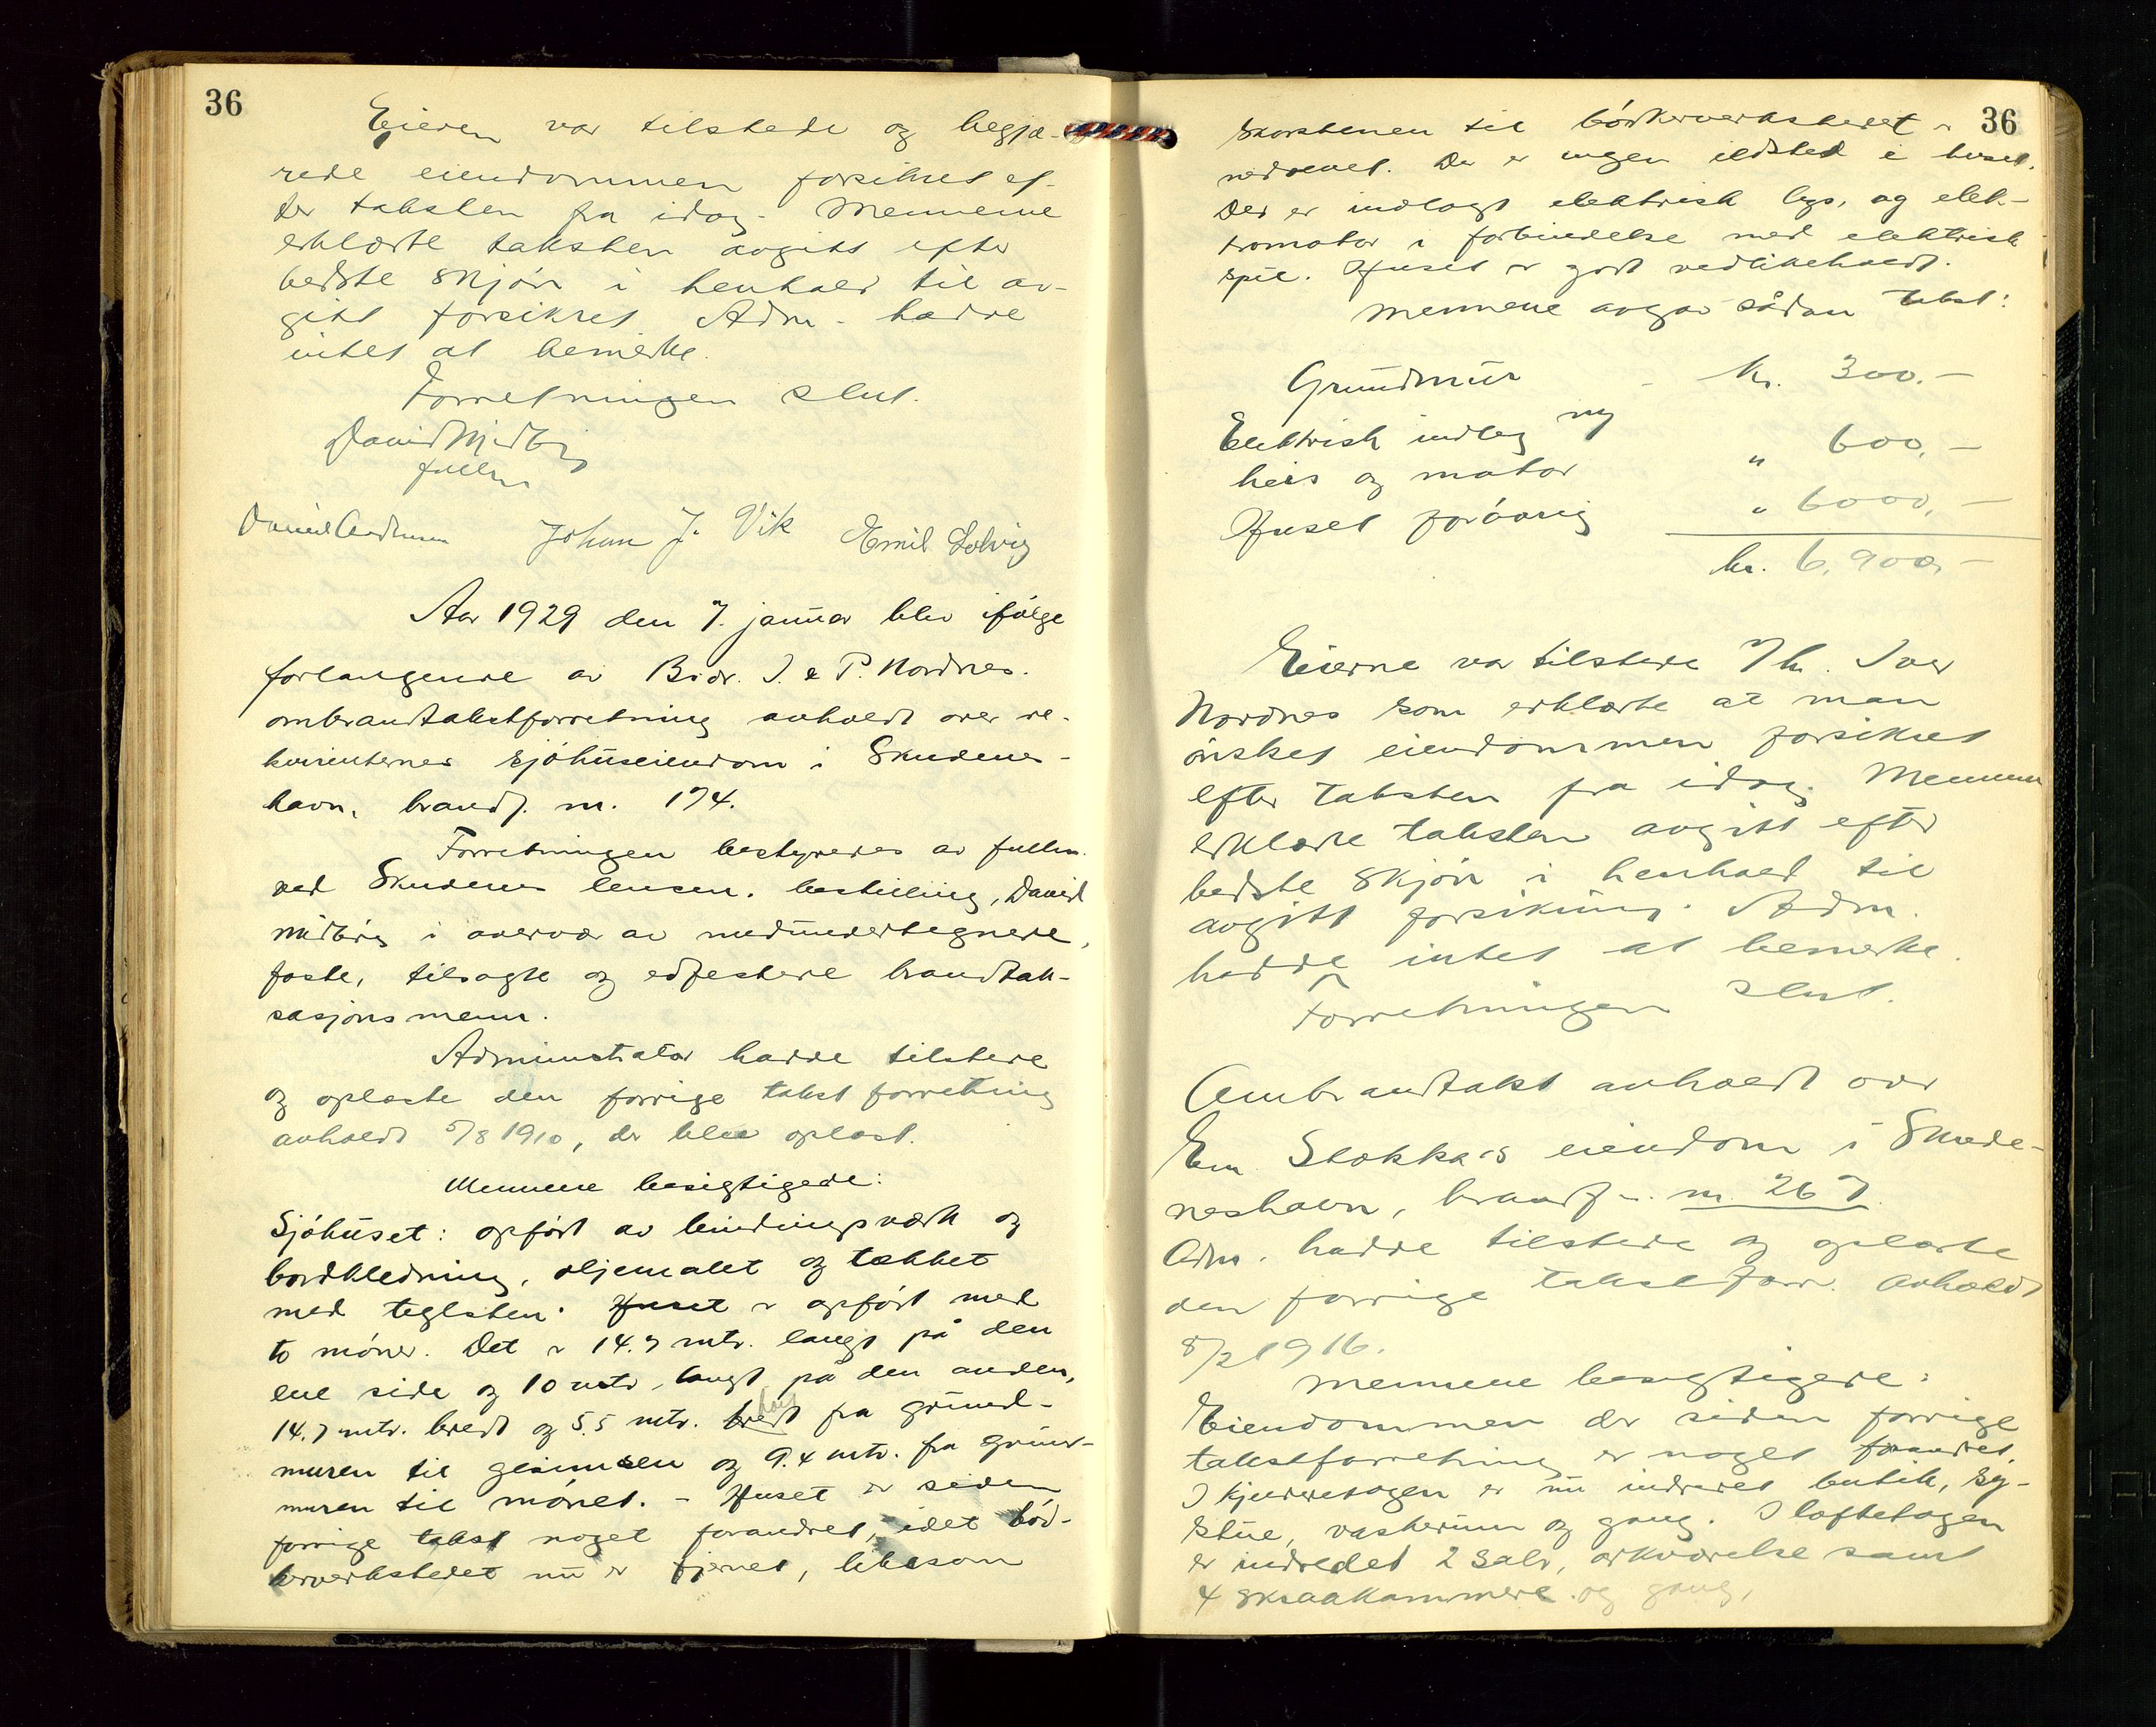 36
Eieren var tilstede og begjæ-
rede eiendommen forsikret ef-
ter taksten fra idag. Mennene
erklærte taksten avgitt efter
bedste skjøn i henhold til av-
gitt forsikret. Adm. hadde
intet at bemerke.
Forretningen slut.
David Midbøe
fullm
Johan J. Vik Emil Solvig
Aar 1929 den 7. januar blev ifølge
forlangende av Brdr. I. & P. Nordnes.
ombrandtakstforretning avholdt over re-
kvirenternes sjøhuseiendom i Skudenes-
havn, brandf. nr. 174.
Forretningen bestyredes av fullm.
ved Skudenes lensm. bestilling, David
Midbøe i overvær av medundertegnede,
faste, tilsagte og edfestede brandtak-
sasjonsmenn.
Administrator hadde tilstede
og oplæste den forrige takstforretning
avholdt 5/8 1910, der blev oplæst.
Mennene besigtigede:
Sjöhuset: opført av bindingsverk og
bordkledning, oljemalet og tækket
med teglsten. Huset er opført med
to møner. Det er 14.7 mtr. langt på den
ene side og 10 mtr. langt på den anden,
14.7 mtr. bredt og 5.5 mtr. bredt høit fra grund-
muren til gesimsen og 9.4 mtr. fra grund-
muren til mønet. - Huset er siden
forrige takst noget forandret, idet bød-
kerverkstedet nu er fjernet, likesom
36
skorstenen til bødkerverkstedet er
nedrevet. Der er ingen ildsted i huset.
Der er indlagt elektrisk lys, og elek-
tromotor i forbindelse med elektrisk
spil. Huset er godt vedlikeholdt.
Mennene avgav sådan takst:
Grundmur - kr. 300.-
Elektrisk indlæg ny
heis og motor " 600,-
Huset forøvrig " 6000,-
kr. 6,900,-
Eierne var tilstede v/ hr. Iver
Nordnes som erklærte at man
ønsket eiendommen forsikret
efter taksten fra idag. Mennene
erklærte taksten avgitt efter
bedste skjøn i henhold til
avgitt forsikring. Adm.
hadde intet at bemerke.
Forretningen slut.
Ombrandtakst avholdt over
Em. Stokka's eiendom i Skude-
neshavn, brandf. nr. 267.
Adm. hadde tilstede og oplæste
den forrige takstforr. avholdt
8/2 1916.
Mennene besigtigede:
Eiendommen der siden forrige
takstforretning er noget forandret.
I kjelderetagen er nu indredet butik, sy-
stue, vaskerum og gang. I loftetagen
er indredet 2 sale, arkværelse samt
4 skraakammere og gang,